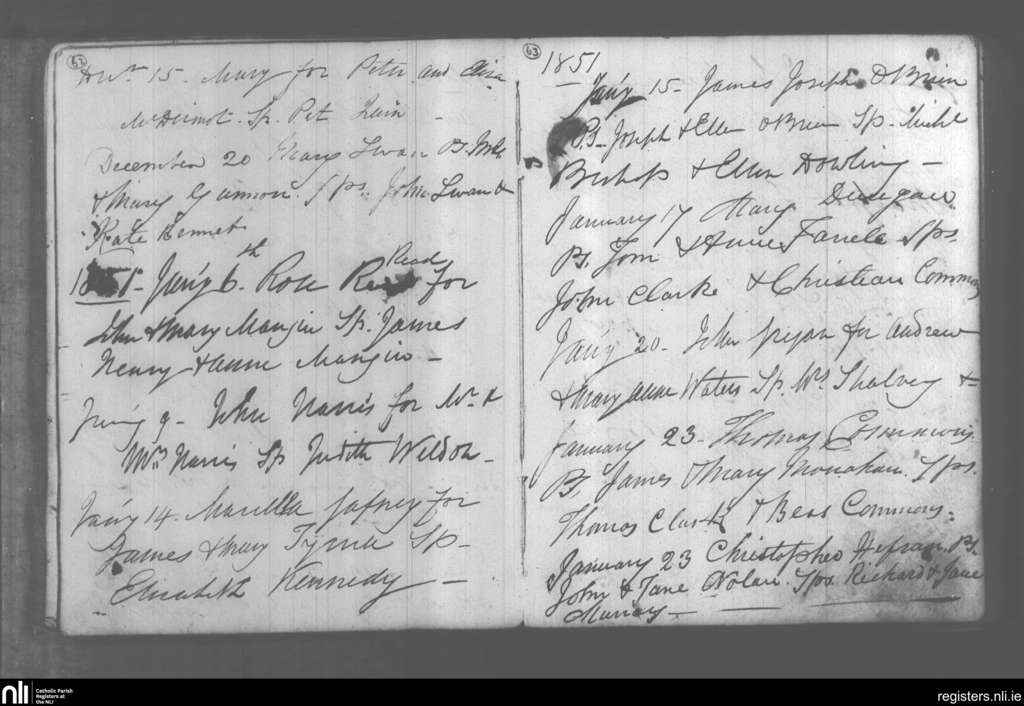 62
15. Mary for Peter and Eliza
McDermot. Sp. Pat
December 20 Mary Swan Ps.
& Mary Gannon. Sps. John Swan &
Kate Bennet
1851. Jan'y 6th. Rose Read for
John & Mary Mangin Sp. James
Henry & Anne Mangin -
9 - John Narris for Mr. &
Mrs Narris Sp Judith Weldon -
Jan'y 14. for
James & Mary Sp -
Elizabeth Kennedy -
63
1851
- Jan'y 15 - James Joseph O Brien
Ps - Joseph & Ellen O Brien Sp - Michl
Bishop & Ellen Dowling -
January 17 Mary Dunegan
Ps. Tom & Anne Sps.
John Clarke & Christian Commons
Jan'y 20 - John for Andrew
& Mary Anne Waters Sp. Mrs Shalvey &
January 23 - Thomas
Ps. James & Mary Monahan. Sps.
Thomas Clark & Bess Commons.
January 23 Christopher Ps.
John & Jane Nolan. Sps. Richard & Jane
Murray -
nli
Catholic Parish
Registers at
the NLI
registers.nli.ie